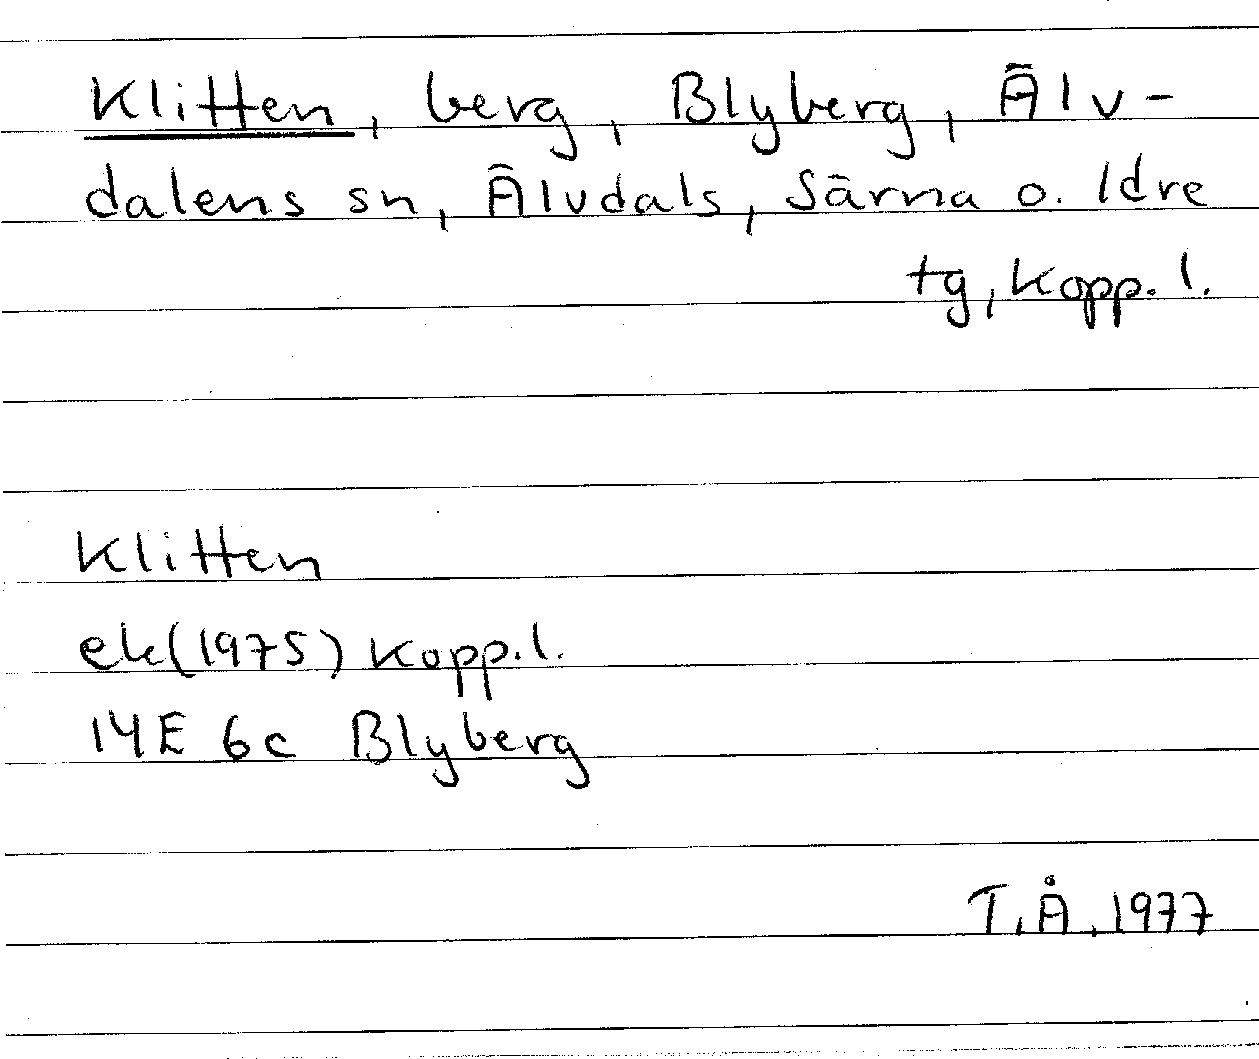 Klitten, berg, Blyberg, Älv-
dalens sn, Älvdals, Särna o. Idre
tg, Kopp. l.
Klitten
ek (1975) Kopp. l.
14E 6c Blyberg
T.Å. 1977